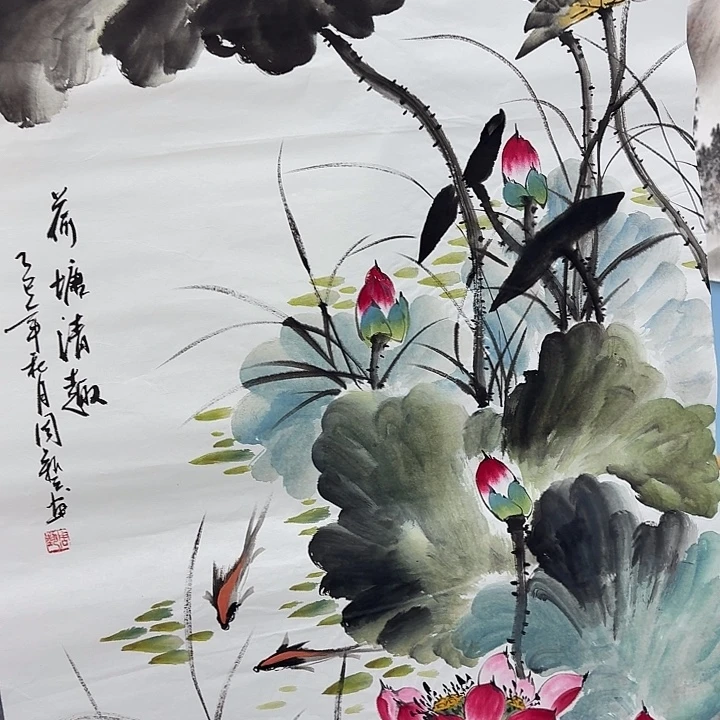 荷塘清趣
乙巳年秋月周艺画